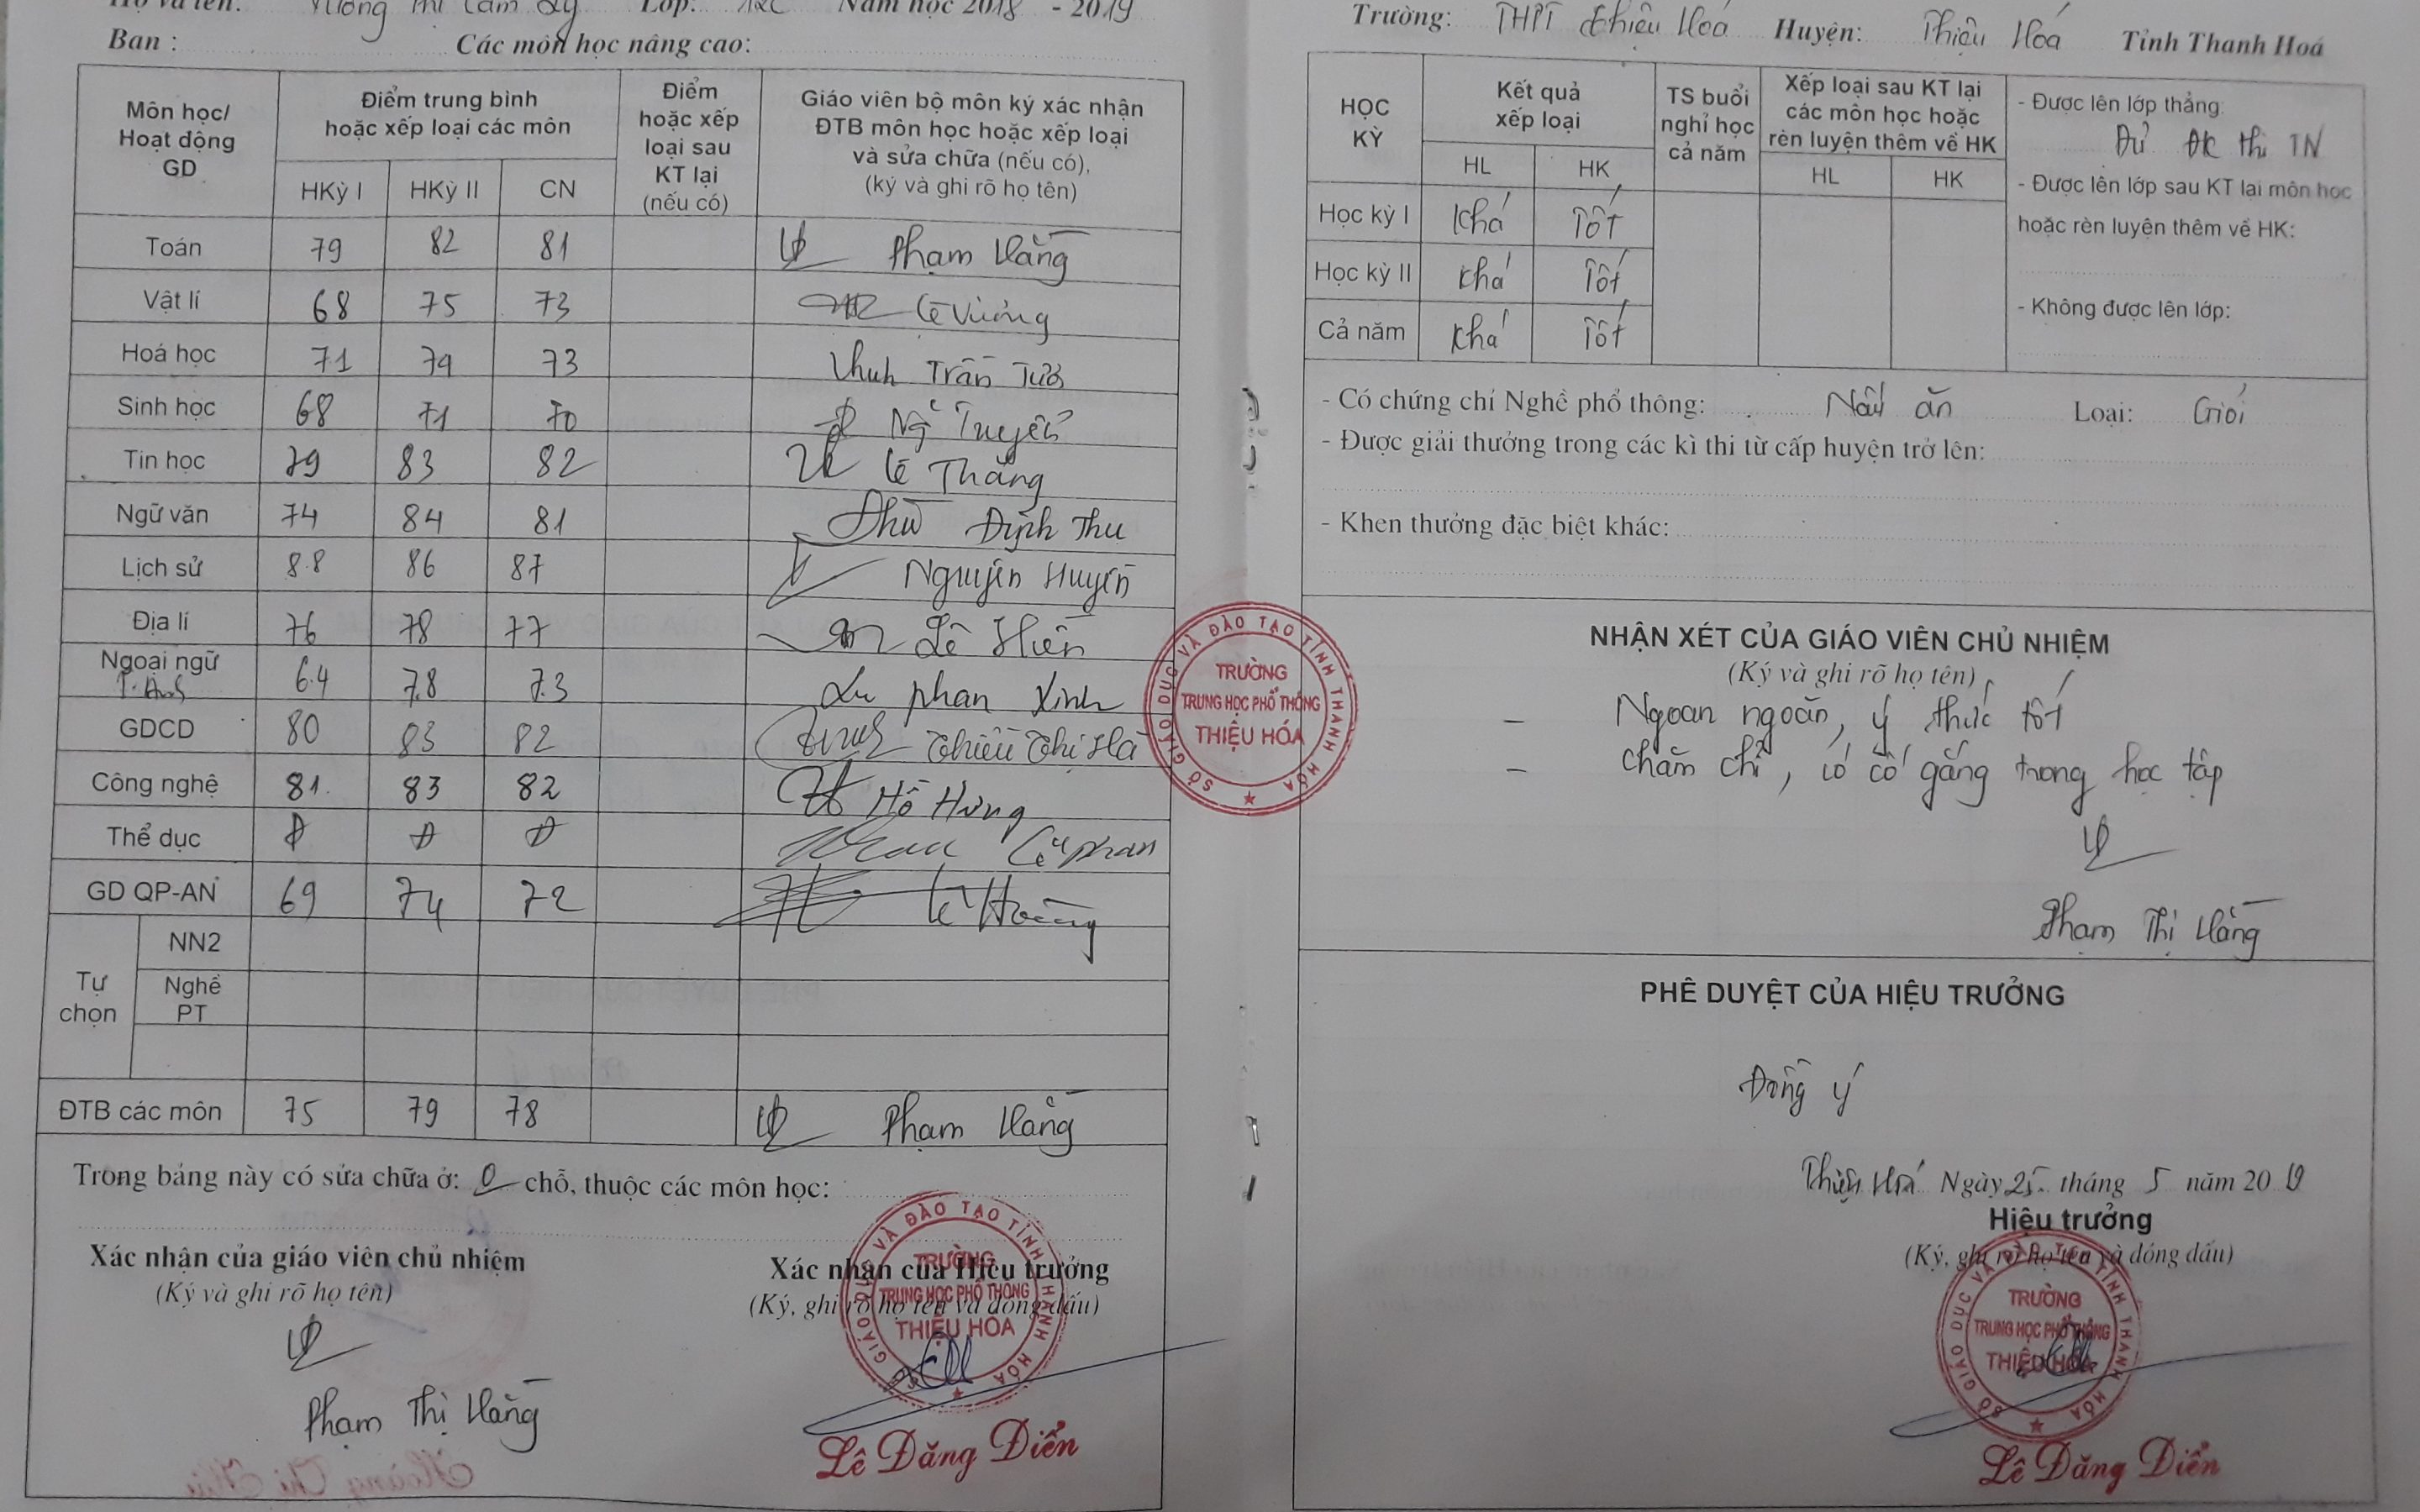 Họ và tên: Vương Thị Cẩm Lớp: 12C Năm học 2018 - 2019
Ban : Các môn học nâng cao:
Môn học/ Hoạt động GD
Điểm trung bình hoặc xếp loại các môn
Điểm hoặc xếp loại sau KT lại (nếu có)
Giáo viên bộ môn ký xác nhận ĐTB môn học hoặc xếp loại và sửa chữa (nếu có), (ký và ghi rõ họ tên)
HKỳ I HKỳ II CN
Toán 79 82 81 Phạm Hằng
Vật lí 68 75 73 Lê Vương
Hoá học 71 74 73 Trần
Sinh học 68 71 70 Ng Tuyến
Tin học 79 83 82 Lê Thắng
Ngữ văn 74 84 81 Định Thu
Lịch sử 8.8 86 87 Nguyễn Huyền
Địa lí 76 78 77 Lê Hiền
Ngoại ngữ T.Anh 6.4 7.8 7.3 Phan Xinh
GDCD 80 83 82 Thiều Thị Hà
Công nghệ 81 83 82 Hồ Hưng
Thể dục Đ Đ Đ Lê Phan
GD QP-AN 69 74 72 Lê Hoàng
Tự chọn
NN2
Nghề PT
ĐTB các môn 75 79 78 Phạm Hằng
Trong bảng này có sửa chữa ở: 0 chỗ, thuộc các môn học:
Xác nhận của giáo viên chủ nhiệm
(Ký và ghi rõ họ tên)
Phạm Thị Hằng
Xác nhận của Hiệu trưởng
(Ký, ghi rõ họ tên và đóng dấu)
SỞ GIÁO DỤC VÀ ĐÀO TẠO TỈNH THANH HÓA
TRƯỜNG
TRUNG HỌC PHỔ THÔNG
THIỆU HÓA
Lê Đăng Điển
SỞ GIÁO DỤC VÀ ĐÀO TẠO TỈNH THANH HÓA
TRƯỜNG
TRUNG HỌC PHỔ THÔNG
THIỆU HÓA
Trường: THPT Thiệu Hoá Huyện: Thiệu Hoá Tỉnh Thanh Hoá
HỌC KỲ
Kết quả xếp loại
TS buổi nghỉ học cả năm
Xếp loại sau KT lại các môn học hoặc rèn luyện thêm về HK
HL HK HL HK
Học kỳ I Khá Tốt
Học kỳ II Khá Tốt
Cả năm Khá Tốt
- Được lên lớp thẳng:
Đủ ĐK thi TN
- Được lên lớp sau KT lại môn học
hoặc rèn luyện thêm về HK:
- Không được lên lớp:
- Có chứng chỉ Nghề phổ thông: Nấu ăn Loại: Giỏi
- Được giải thưởng trong các kì thi từ cấp huyện trở lên:
- Khen thưởng đặc biệt khác:
NHẬN XÉT CỦA GIÁO VIÊN CHỦ NHIỆM
(Ký và ghi rõ họ tên)
- Ngoan ngoãn, ý thức tốt
- Chăm chỉ, có cố gắng trong học tập
Phạm Thị Hằng
PHÊ DUYỆT CỦA HIỆU TRƯỞNG
Đồng ý
Thiệu Hoá Ngày 25 tháng 5 năm 2019
Hiệu trưởng
(Ký, ghi rõ họ tên và đóng dấu)
SỞ GIÁO DỤC VÀ ĐÀO TẠO TỈNH THANH HÓA
TRƯỜNG
TRUNG HỌC PHỔ THÔNG
THIỆU HÓA
Lê Đăng Điển